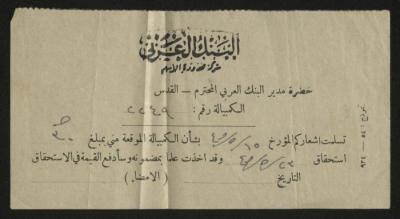 البنك العربي
شركة محدودة الاسهم
حضرة مدير البنك العربي المحترم — القدس
الكمبيالة رقم: ٢٢٤٩
تسلمت اشعاركم المؤرخ ١٥/٥/٤٥ بشأن الكمبيالة الموقعة مني بمبلغ
استحقاق ٢٣/٥/٤٥ وقد اخذت علماً بمضمونه وسأدفع القيمة في الاستحقاق
التاريخ ( الامضاء )